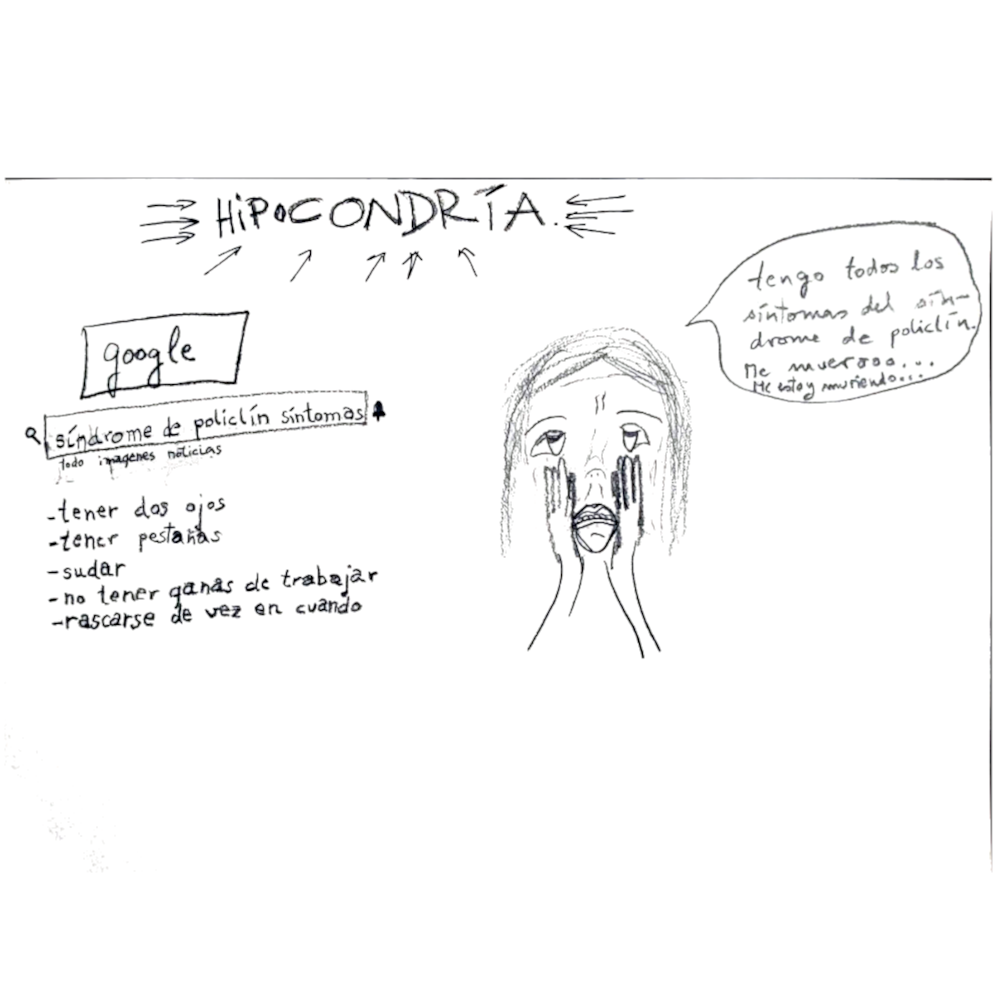 HiPOCONDRÍA.
google
síndrome de policlín síntomas
todo imagenes noticias
-tener dos ojos
-tener pestañas
-sudar
-no tener ganas de trabajar
-rascarse de vez en cuando
tengo todos los
síntomas del sín-
drome de policlín.
Me muerooo...
Me estoy muriendo....